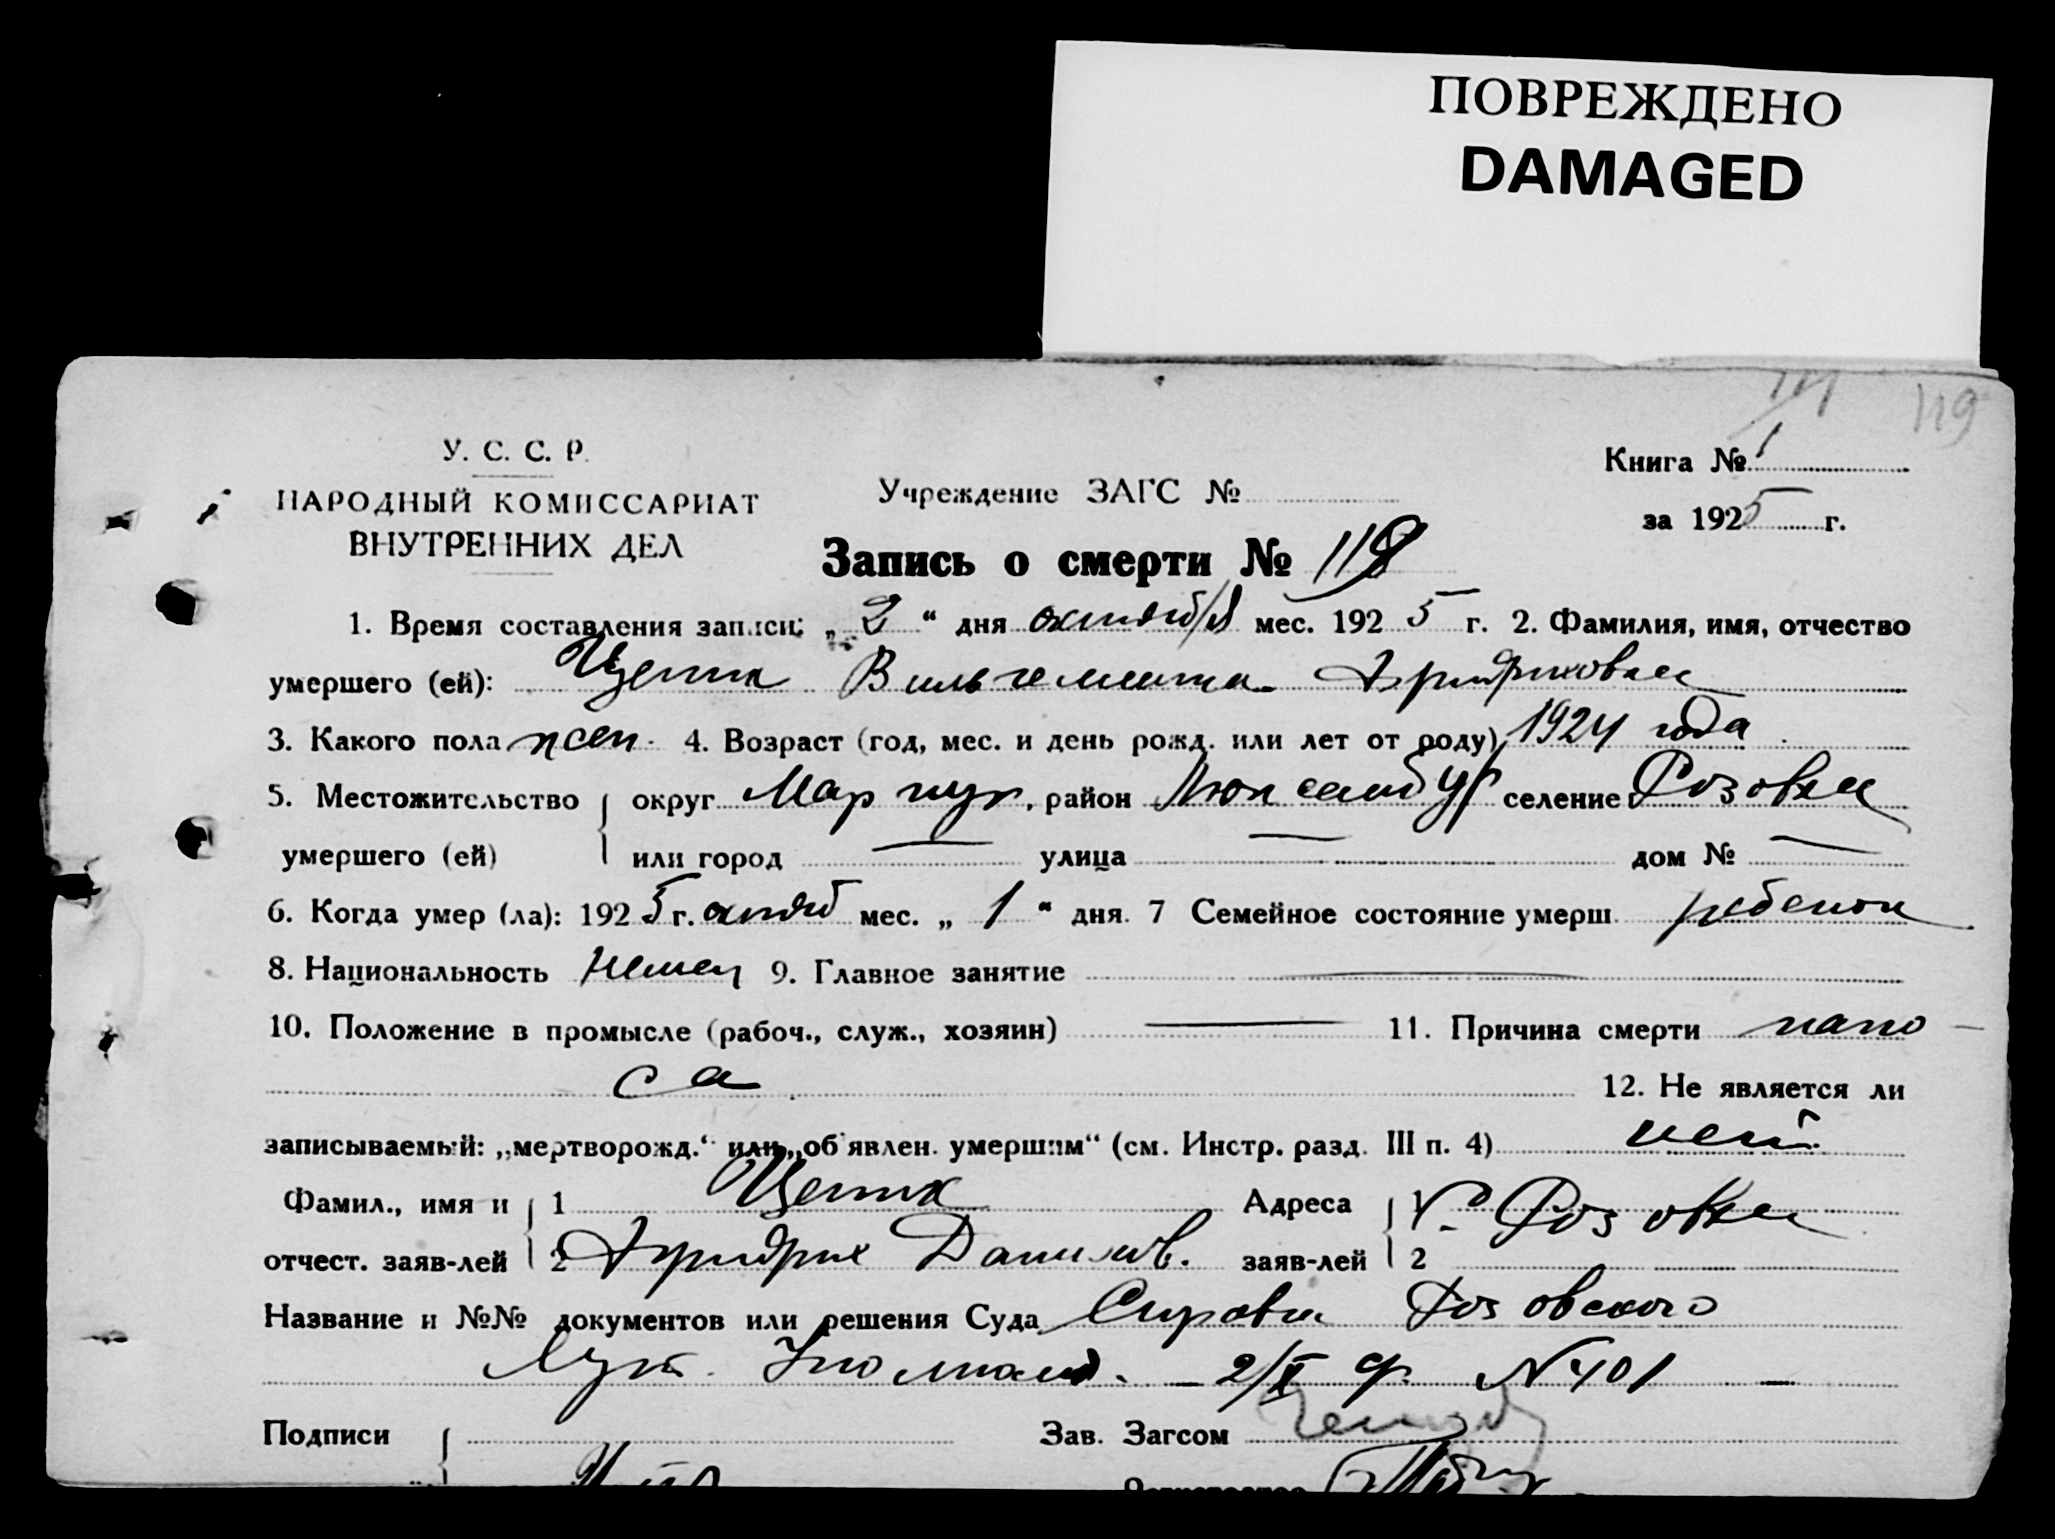 ПОВРЕЖДЕНО
DAMAGED
119
У. С. С. Р.
Книга № 1
НАРОДНЫЙ КОМИССАРИАТ
Учреждение ЗАГС №
за 1925 г.
ВНУТРЕННИХ ДЕЛ
Запись о смерти № 118
1. Время составления записи: „ 2 “ дня октября мес. 1925 г. 2. Фамилия, имя, отчество
умершего (ей): Вильгемина Фридриховна
3. Какого пола жен. 4. Возраст (год, мес. и день рожд. или лет от роду) 1924 года
5. Местожительство округ Мариуп, район Люксембург селение Розовка
умершего (ей) или город — улица — дом № —
6. Когда умер (ла): 1925 г. октяб мес. „ 1 “ дня. 7 Семейное состояние умерш. ребенок
8. Национальность немец 9. Главное занятие —
10. Положение в промысле (рабоч., служ., хозяин) — 11. Причина смерти
12. Не является ли
записываемый: „мертворожд.“ или „об'явлен. умершим“ (см. Инстр. разд. III п. 4) нет.
Фамил., имя и 1 Адреса 1 с. Розовка
отчест. заяв-лей 2 Фридрих Данилов. заяв-лей 2
Название и №№ документов или решения Суда Справка Розовского
— 2/X № 401 —
Подписи Зав. Загсом